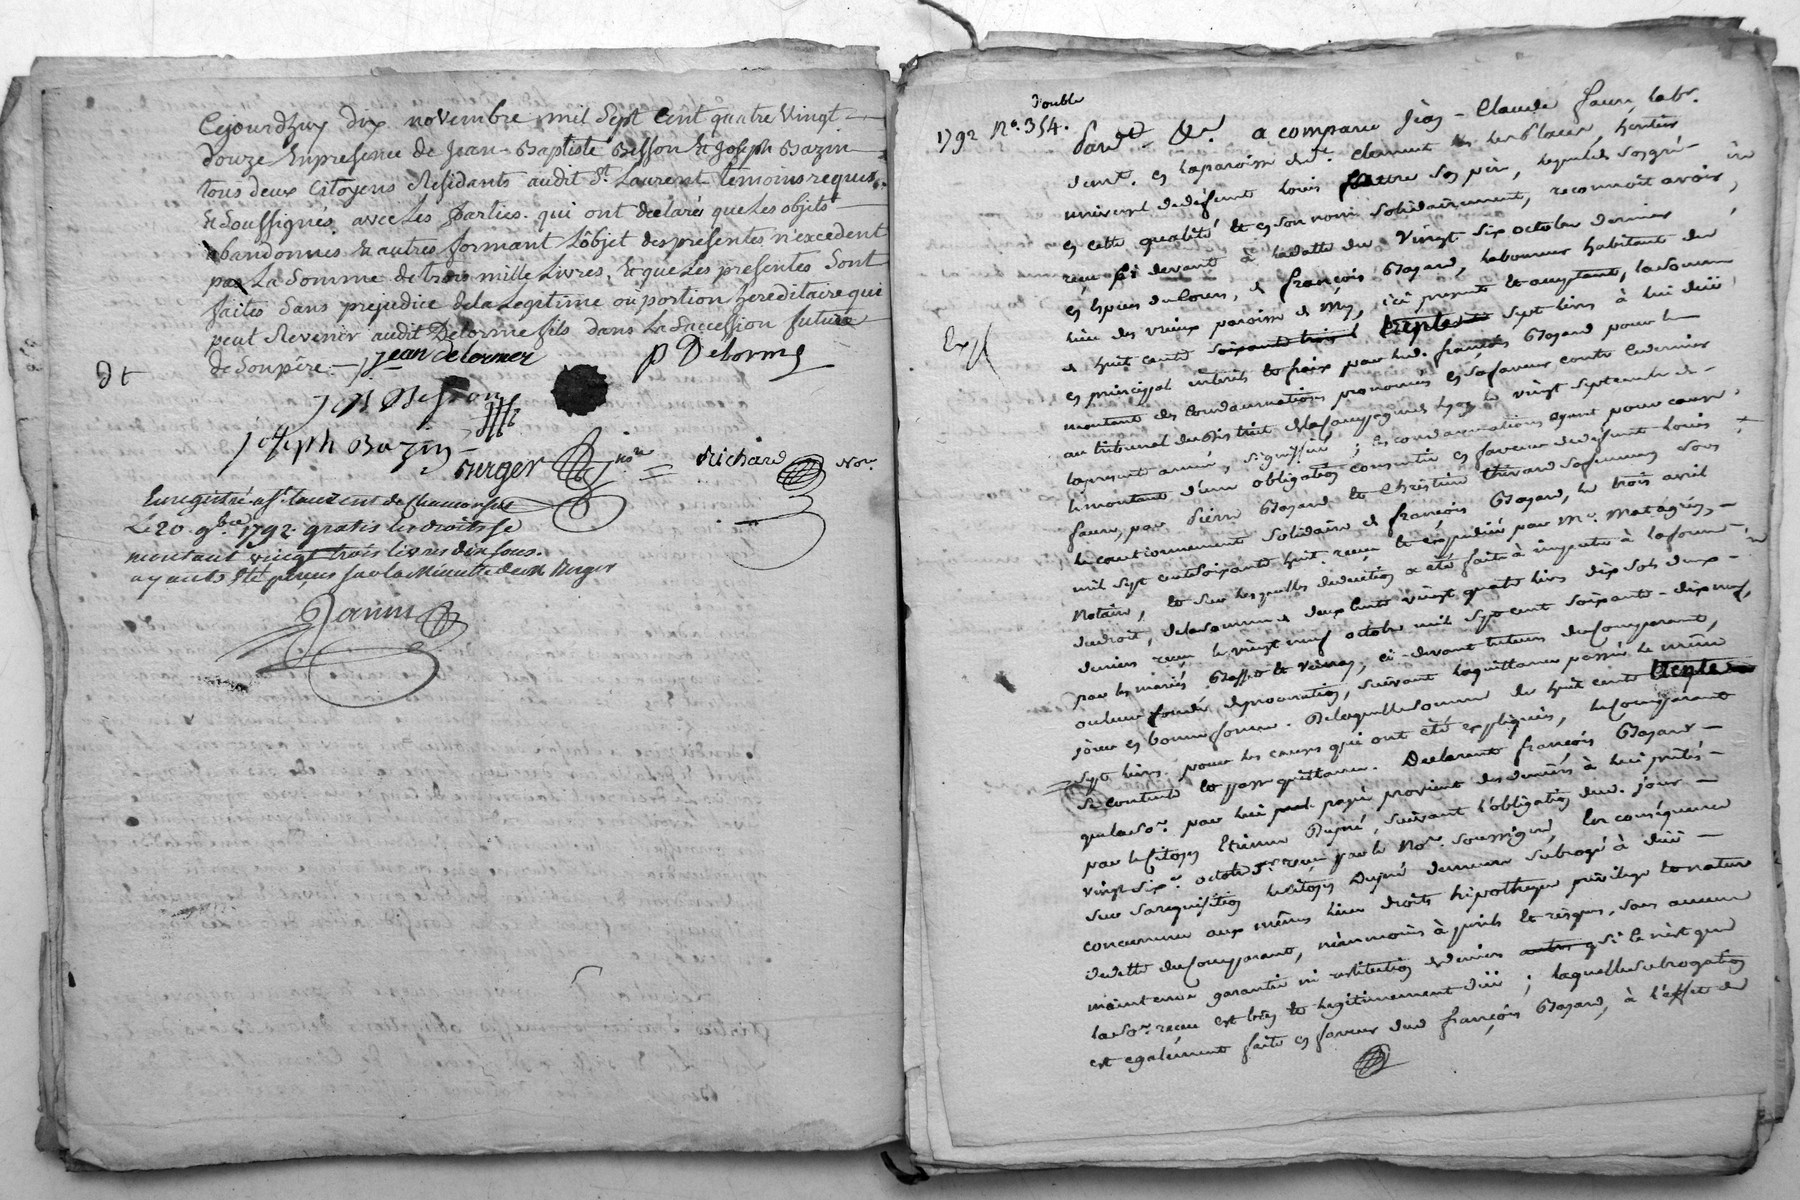 Cejourdhuy dix novembre mil Sept Cent quatre Vingt
douze En presence de Jean-Baptiste Besson & Joseph Bazin
tous deux Citoyens Residants audit St. Laurent temoins requis
& Soussignés avec Les Parties. qui ont declaré que Les objets
abandonnés & autres formant L'objet des presentes n'excedent
pas La Somme de trois mille Livres, & que Les presentes Sont
faites Sans prejudice de la Legitime ou portion hereditaire qui
peut Revenir audit Delorme fils dans La Succession future
de Son père. Jean delormer P Delorme
Dt
J B Besson
Joseph Bazin
Berger nre Richard Nore
Enregistré a St. laurent de Chamousset
Le 20. 9bre 1792. gratis les droits se
montant vingt trois livres dix sous.
ayants été perçus sur la Minute de Me Berger
Janin
double
1792 No. 354.
Pardt. &r a comparu Jean-Claude faure, labr.
demt. en la paroisse de St. Clement les Places, heritier
universel de défunt Louis faure son père, lequel de son gré
en cette qualité et en son nom solidairement, reconnoît avoir
reçu ci devant à la datte du Vingt six octobre dernier
en espèces de Cours, de françois Bazard, laboureur habitant du
lieu des vieux paroisse de , ici present et acceptant, la somme
Exp
de huit cents sept livres à lui dûë
en principal interêts et frais par led. françois Bazard pour le
montant des Condamnations prononcées en sa faveur contre ce dernier
au tribunal du District de la Campagne de Lyon le vingt septembre de
la presente année, signifiée ; les condamnations ayant pour cause
le montant d'une obligation consentie en faveur de defunt Louis
faure, par Pierre Bazard et Christine Thivard sa femme, sous
le cautionnement solidaire de françois Bazard, le trois avril
mil sept cent soixante huit. reçue et expediée par Me. Matagrin,
Notaire, et sur lesquelles deduction a été faite à imputer à la forme
du droit, de la somme de deux cents vingt quatre livres dix sols deux
deniers reçue le vingt neuf octobre mil sept cent soixante-dix neuf,
par les mariés et , ci-devant tuteurs du Comparant,
ou leur fondé de procuration, suivant la quittance passée le même
jour en bonne forme. De laquelle somme de huit cents
sept livres. pour les causes qui ont été expliquées, le Comparant
se contente et passe quittance. Declarant françois Bazard
que la so. par lui payée provient des deniers à lui prêtés
par le Citoyen Etienne Dupré, suivant l'obligation dud. jour
vingt six. octobre reçue par le Nore. soussigné, En conséquence
sur sa requisition le citoyen Dupré demeure subrogé à dûë
concurrence aux mêmes lieux droits hipotheque privilege et nature
de dette du Comparant, néanmoins à perils et risques, sans aucune
maintenue garantie ni restitution de deniers si ce n'est que
la so. reçue est bien et legitimement dûë ; laquelle subrogation
est également faite en faveur dud. françois Bazard, à l'effet de